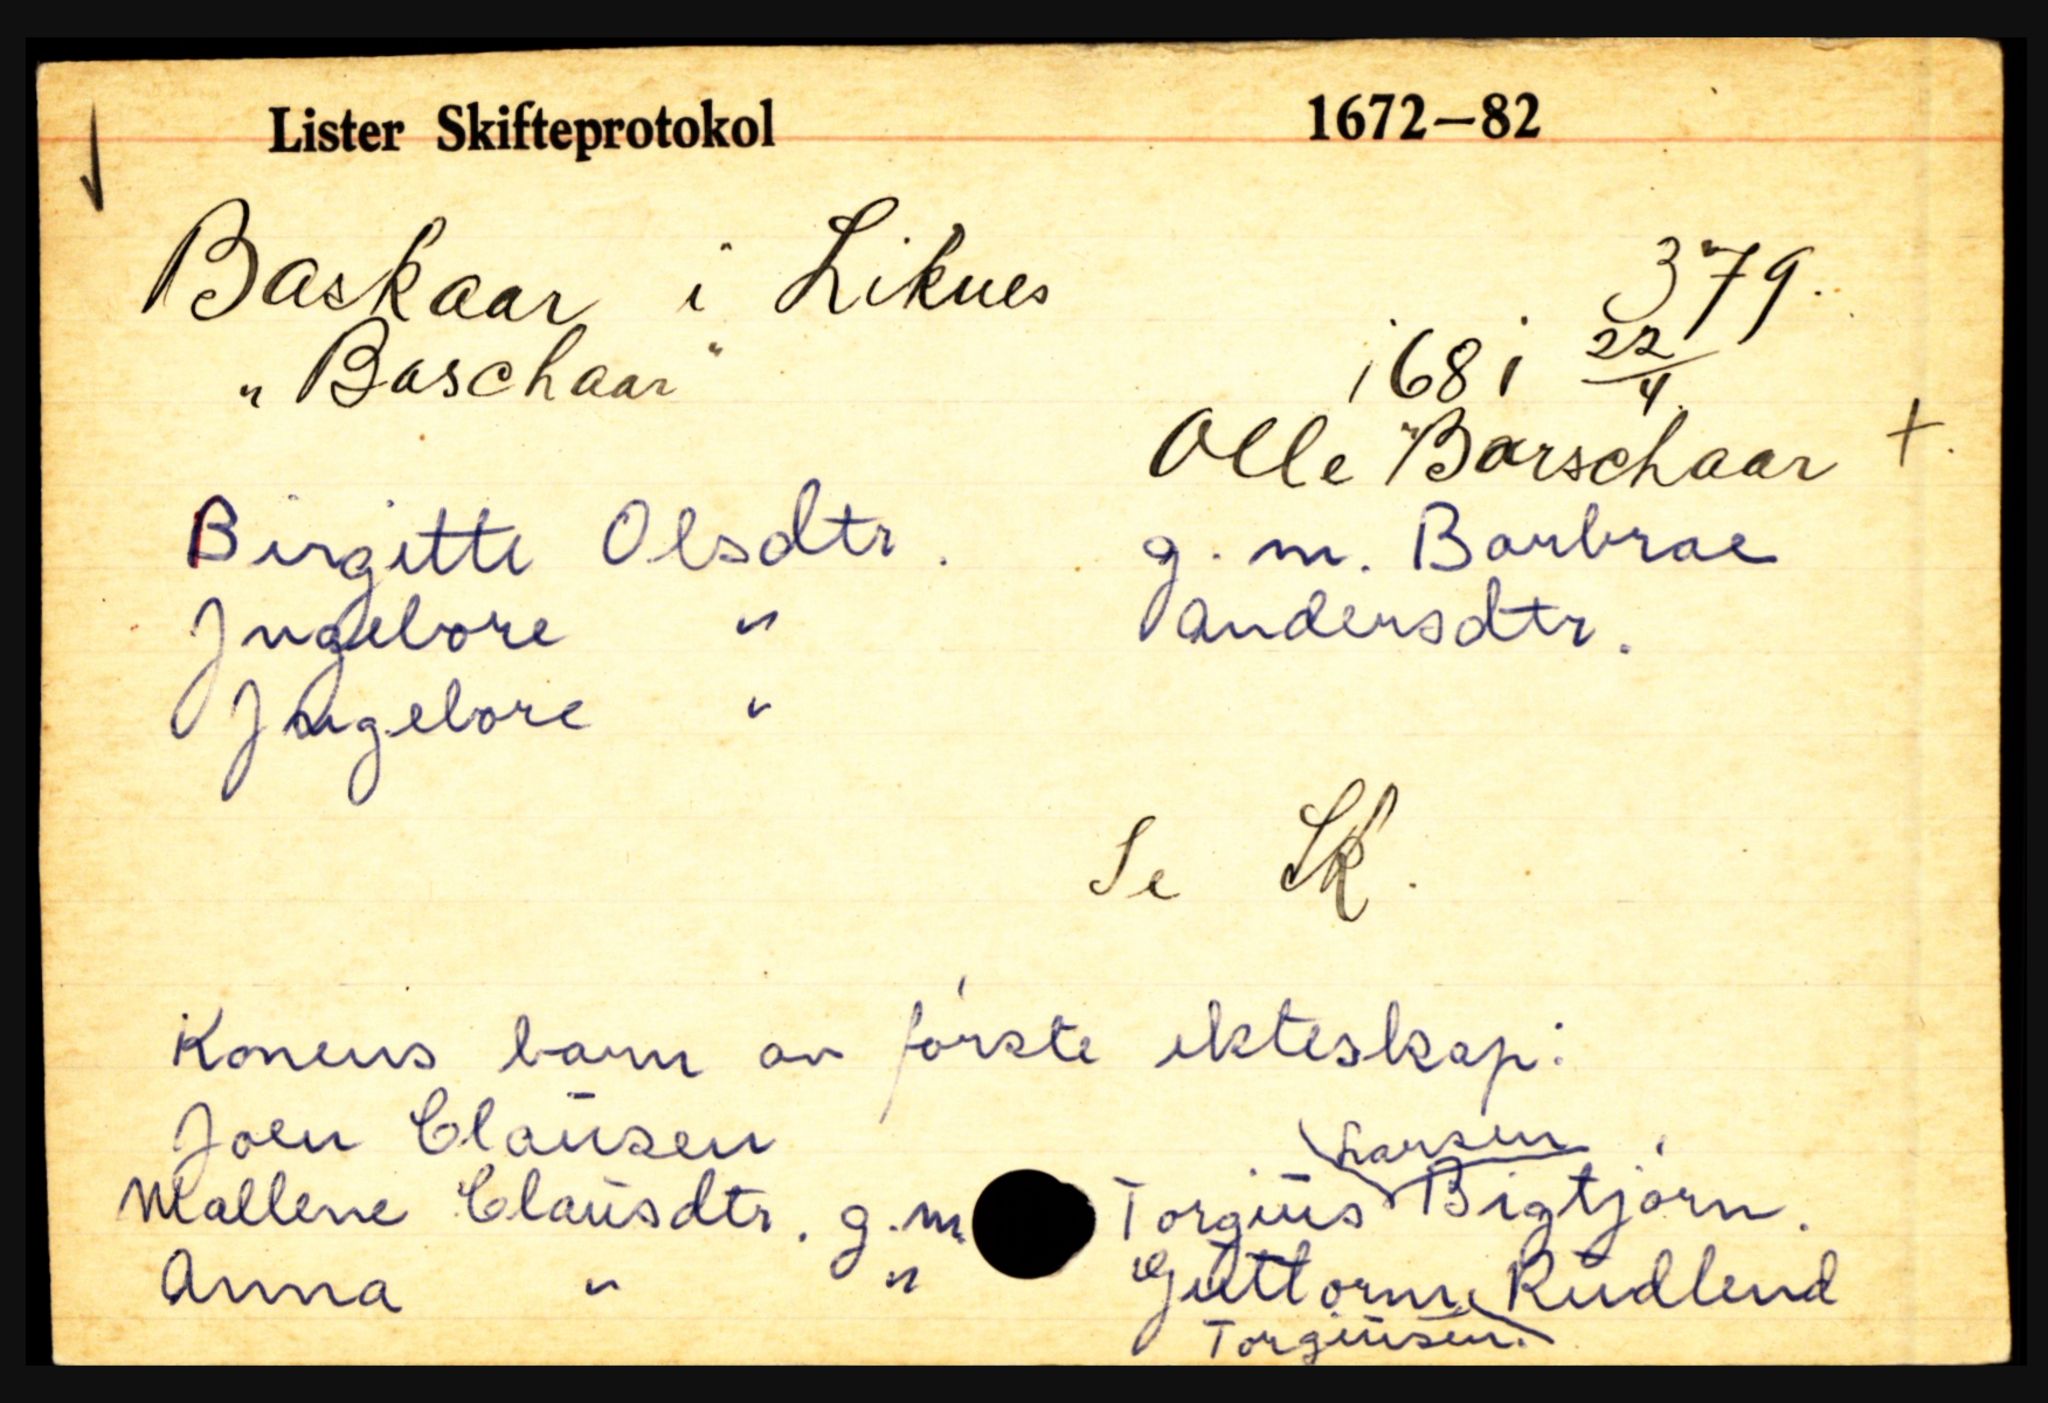 Lister Skifteprotokol 1672–82
Baskaar i Liknes 379.
"Baschaar" 1681 22/4
Olle "Barschaar +.
Birgitte Olsdtr. g. m. Barbrae
Ingebore " Andersdtr.
Ingebore "
Se Sk.
Konens barn av förste ekteskap:
Joen Claüsen
Larsen
Mallene Claüsdtr. g. m. Torgiüs Bigtjórn.
Anna " " Güttorm Rüdlend
Torgiüsen.